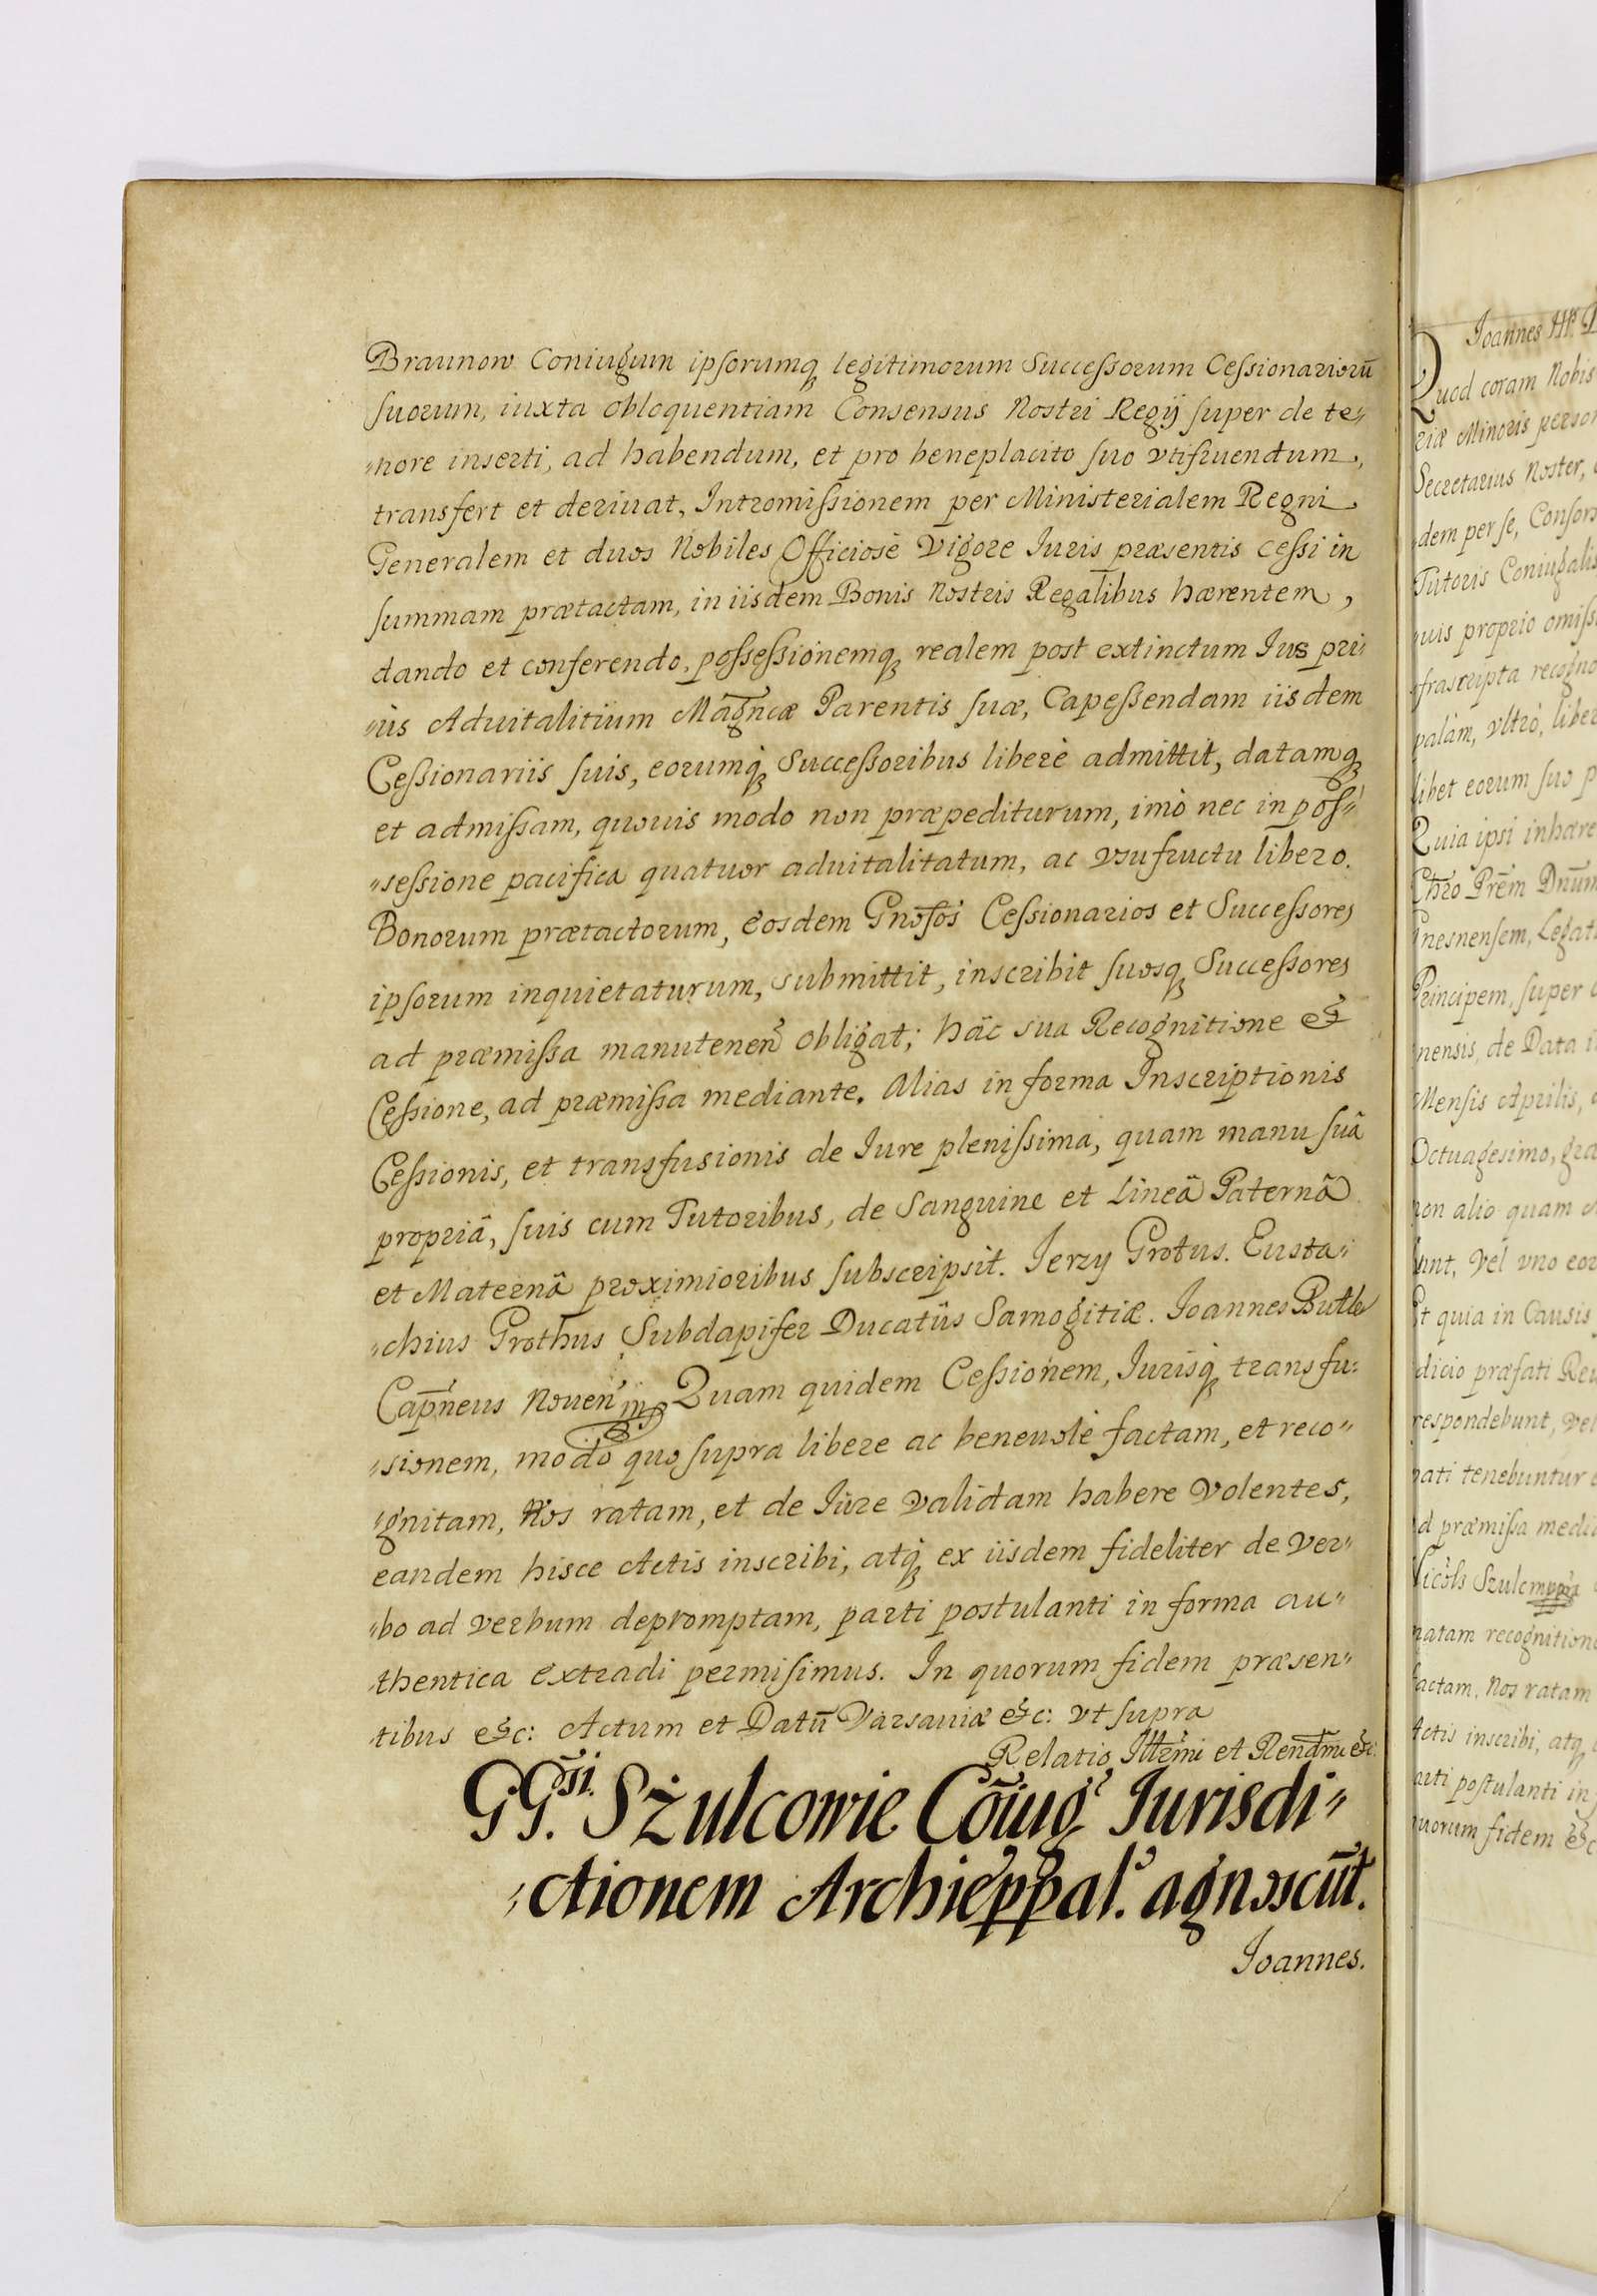 Braunow Coniugum ipsorumq, legitimorum Successorum Cessionariorũ
suorum, iuxta obloquentiam Consensus Nostri Regij super de te„
„nore inserti, ad habendum, et pro beneplacito suo vtifruendum,
transfert et deriuat, Intromissionem per Ministerialem Regni
Generalem et duos Nobiles Officiosè Vigore Iuris præsentis cessi in
summam prætactam, in iisdem Bonis Nostris Regalibus hærentem,
dando et conferendo, possessionemq, realem post extinctum Ius pri„
„ùs Aduitalitium Magncæ Parentis suæ, Capessendam iisdem
Cessionariis suis, eorumq́, Successoribus liberè admittit, datamq,
et admissam, quouis modo non præpediturum, imò nec in pos„
„sessione pacifica quatuor aduitalitatum, ac vsufructu libero.
Bonorum prætactorum, eosdem Gnosos Cessionarios et Successores
ipsorum inquietaturum, submittit, inscribit suosq, Successores
ad præmissa manutenen̄ obligat; hâc sua Recognitione et
Cessione, ad præmissa mediante. Alias in forma Inscriptionis
Cessionis, et transfusionis de Iure plenissima, quam manu suâ
propriâ, suis cum Tutoribus, de Sanguine et Lineâ Paternâ
et Maternâ proximioribus subscripsit. Jerzy Grotus. Eusta„
„chius Grothus Subdapifer Ducatûs Samogitiæ. Joannes Butler
Capneus Nouen̄ mp Quam quidem Cessionem, Iurisq́, transfu:
„sionem, modo quo supra libere ac beneuolè factam, et reco„
„gnitam, Nos ratam, et de Iure validam habere Volentes,
eandem hisce Actis inscribi, atq́, ex iisdem fideliter de Ver„
„bo ad verbum depromptam, parti postulanti in forma au„
„thentica extradi permisimus. In quorum fidem præsen„
tibus &c: Actum et Datũ Varsauiæ &c: vt supra
Relatio Illrmi et Rendmi &c:
GG.si Szulcowie Cõiug Iurisdi„
„ctionem Archieppal. agnoscũt.
Joannes.
Joannes III
Quod coram Nobis
riæ Minoris
Secretarius Noster,
„dem per se,
Tutoris Coniugalis
„uis proprio
„frascripta
palàm, vltrò,
libet eorum suo
Quia ipsi
Chro Prem Dnum
Gnesnensem,
Principem, super
nensis, de Data
Mensis Aprilis,
Octuagesimo,
non alio quam
bunt, Vel vno
Et quia in Causis
dicio præfati
respondebunt,
nati tenebuntur
ad præmissa
natam
factam, Nos ratam
Actis inscribi, atq,
parti postulanti in
quorum fidem &c